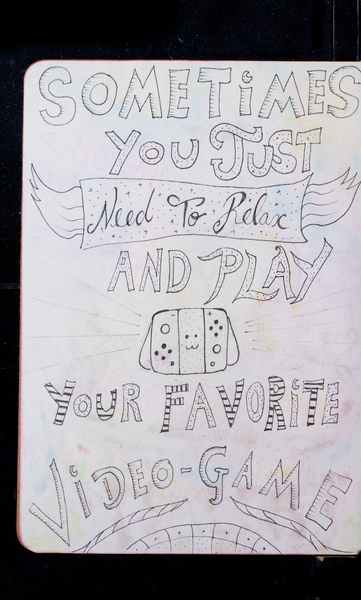 SOMETiMES
YOU JUST
Need To Relax
AND PLAY
YOUR FAVORiTE
ViDEO-GAME